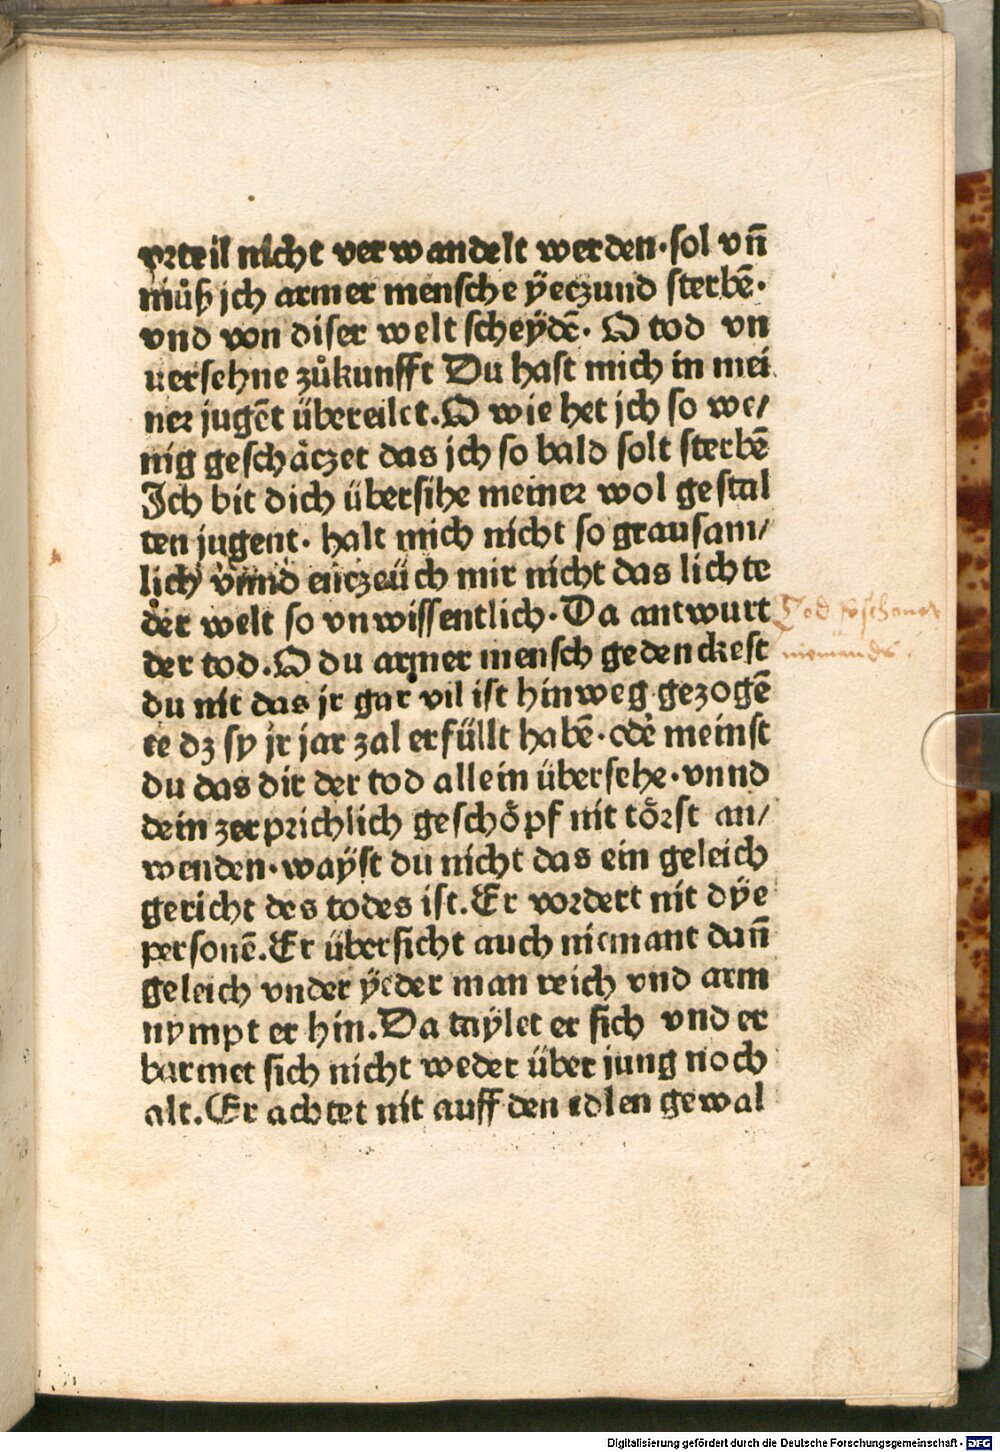 vrteil nicht verwandelt werden·sol vn̄
můß jch armer mensche ÿeczund sterbē·
vnd von diser welt scheÿdē· O tod vn
uersehne zůkunfft Du hast mich in mei
ner jugēt übereilet.O wie het jch so we/
nig geschäczet das jch so bald solt sterbē
Jch bit dich übersihe meiner wol gestal
ten jugent· halt mich nicht so grausam/
lich vnnd entzeüch mir nicht das lichte
der welt so vnwissentlich·Da antwurt
der tod.O du armer mensch gedenckest
du nit das jr gar vil ist hinweg gezogē
te dz sy jr jar zal erfüllt habē·odè meinst
du das dir der tod allein übersehe·vnnd
dein zerprichlich geschöpf nit törst an/
wenden·waÿst du nicht das ein geleich
gericht des todes ist.Er vordert nit dÿe
personē.Er übersicht auch niemant dan̄
geleich vnder ÿeder man reich vnd arm
nympt er hin.Da taÿlet er sich vnd er
barmet sich nicht weder über jung noch
alt.Er achtet nit auff den edlen gewal
Tod
niemands
Digitalisierung gefördert durch die Deutsche Forschungsgemeinschaft - DFG